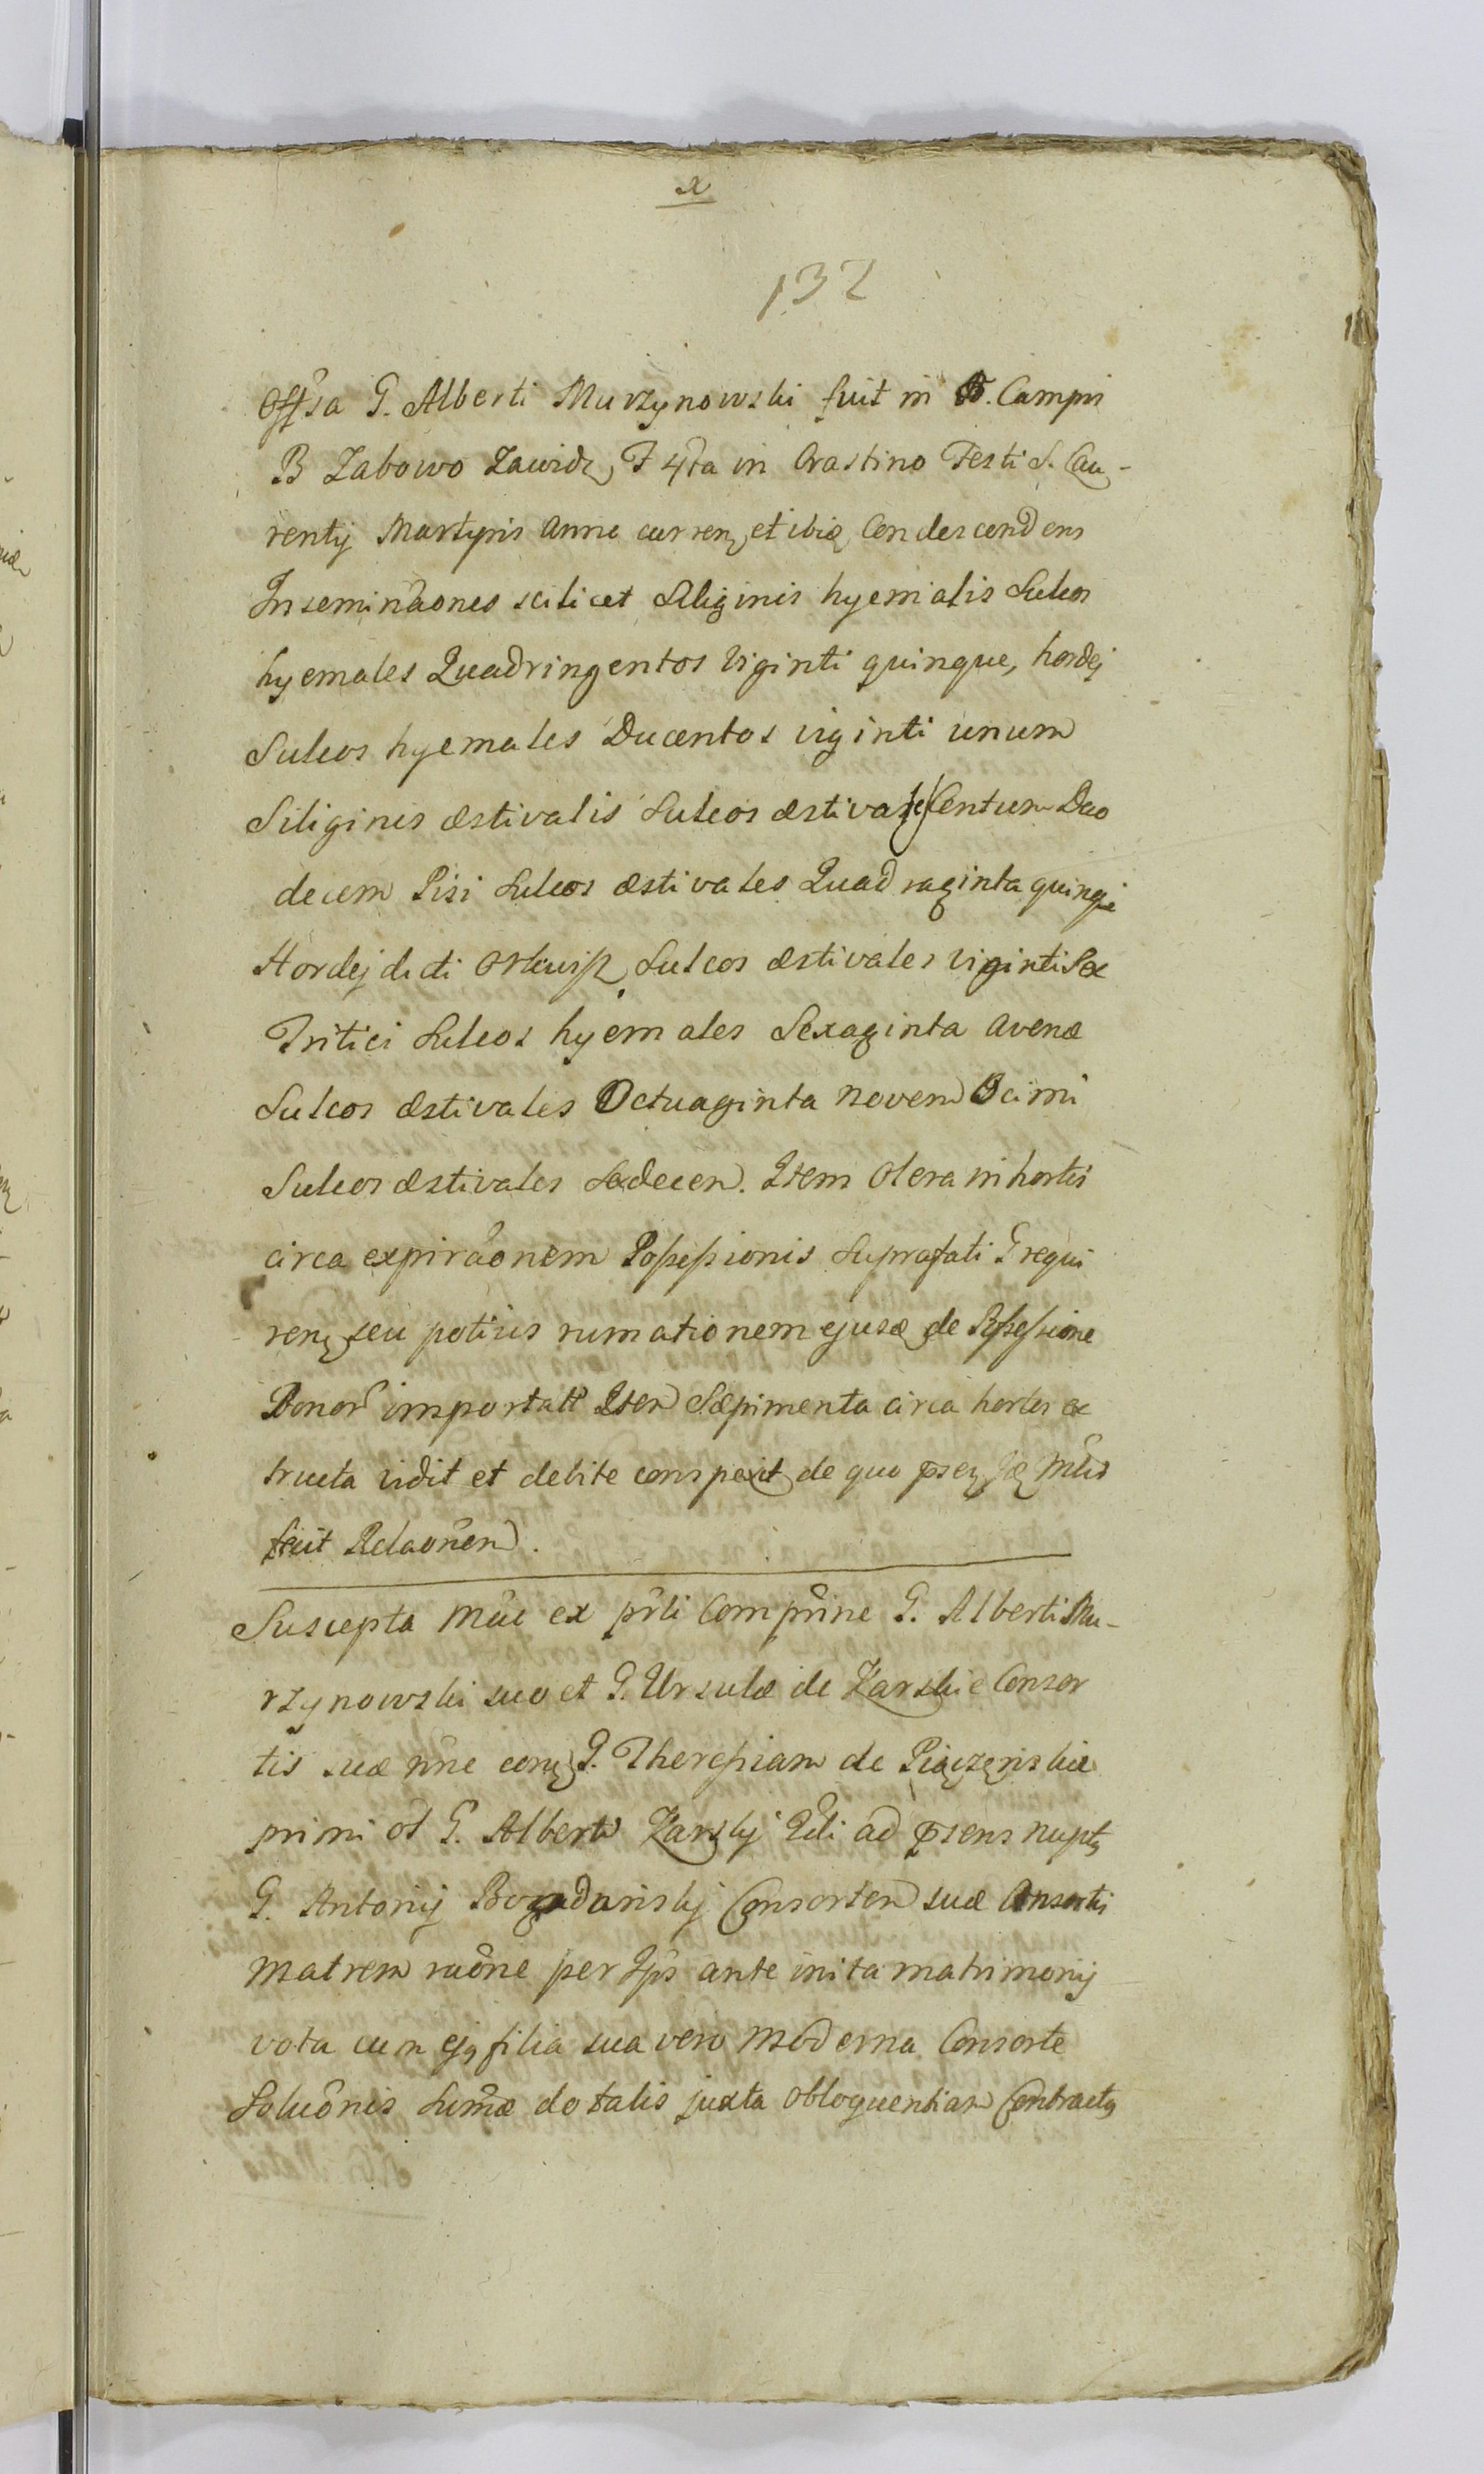 x
132
Offsa G. Alberti Murzynowski fuit in B. Campis
B Zabowo Zawidz, F 4ta in Crastino Festi S. Lau-
rentij Martyris anno curren, et ibiq Condescendens
Inseminaones scilicet Siliginis hyemalis Sulcos
hyemales Quadringentos viginti quinque, hordej
Sulcos hyemales Ducentos viginti unum
Siliginis æstivalis Sulcos æstivales Centum Duo
decem Pisi Sulcos æstivales Quadraginta quinqe
Hordej dicti Sulcos æstivales viginti Sex
Tritici Sulcos hyemales Sexaginta avenæ
Sulcos æstivales Octuaginta novem Ocimi
Sulcos æstivales Sedecem. Item Olera in hortis
circa expiraonem Possessionis Suprafati G requi
ren, seu potius rumationem ejusd de Possessione
Bonor importatt Item Sæpimenta circa hortos ex
tructa vidit et debite conspexit de quo psen Mlis
fecit Relaonem.
Suscepta Mae ex prli Comprine G. Alberti Mu-
rzynowski suo et G. Ursulæ de Zarskie Consor
tis suæ nne con G. Theressiam de
primi ol G. Alberti Zarskj 2di ad psens nupt
G. Antonij Consortem suæ Consortis
matrem raone per Ips ante inita matrimonij
vota cum ejq filia sua vero moderna Consorte
Soluonis Sumæ dotalis juxta obloquentiam Contractq